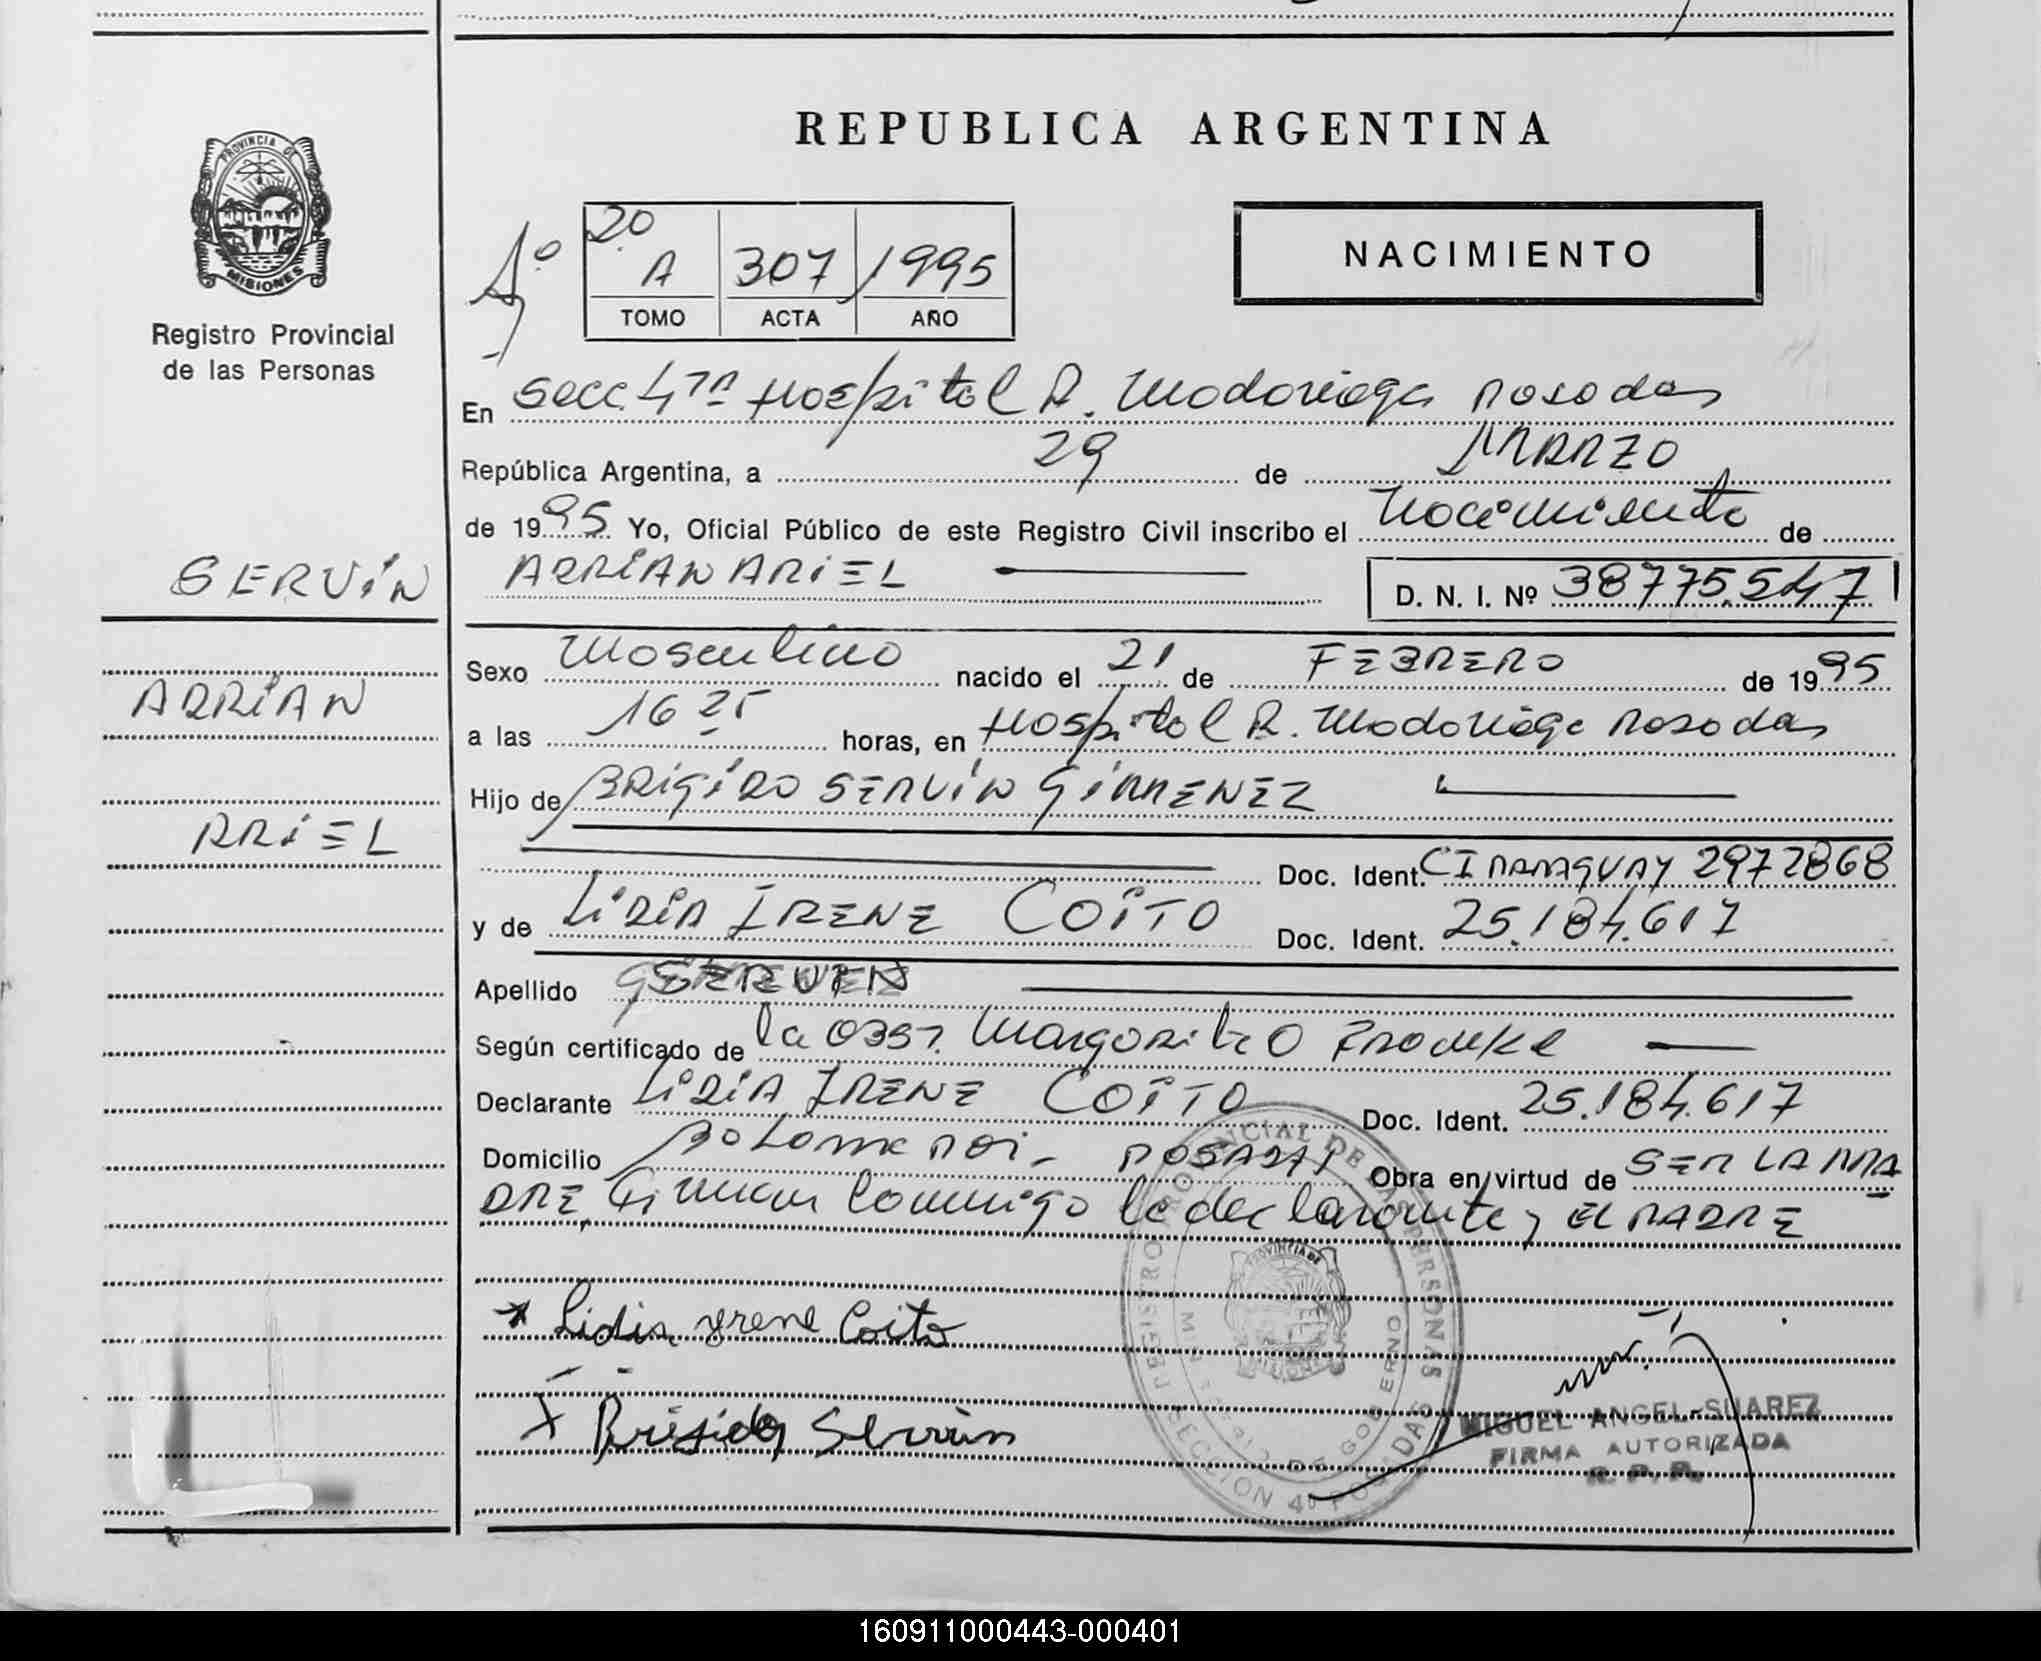 REPUBLICA ARGENTINA
PROVINCIA DE
MISIONES
Registro Provincial
de las Personas
NACIMIENTO
20
A 307 1995
TOMO ACTA AÑO
En Secc. 4ta Hospital R. Madariaga Posadas
República Argentina, a 29 de MARZO
de 1995 Yo, Oficial Público de este Registro Civil inscribo el Nacimiento de
SERVíN
ADRIAN ARIEL D. N. I. Nº 38775.547
Sexo Masculino nacido el 21 de FEBRERO de 1995
ADRIAN
a las 16 25 horas, en Hospital R. Madariaga Posadas
Hijo de BRIGIDO SERVIN GIMENEZ
ARIEL
Doc. Ident. CI PARAGUAY 2972868
y de LIDIA IRENE COITO Doc. Ident. 25.184.617
Apellido
Según certificado de la OBST. Margarita
Declarante LIDIA IRENE COITO Doc. Ident. 25.184.617
Domicilio POSADAS Obra en virtud de SER LA MA
DRE, Firman Conmigo la declarante y EL PADRE
Lidia Yrene Coito
Brisido Servin
REGISTRO PROVINCIAL DE LAS PERSONAS
SECCION 4º POSADAS
PROVINCIA DE
MISIONES
MIGUEL ANGEL SUAREZ
FIRMA AUTORIZADA
R. P. P.
160911000443-000401